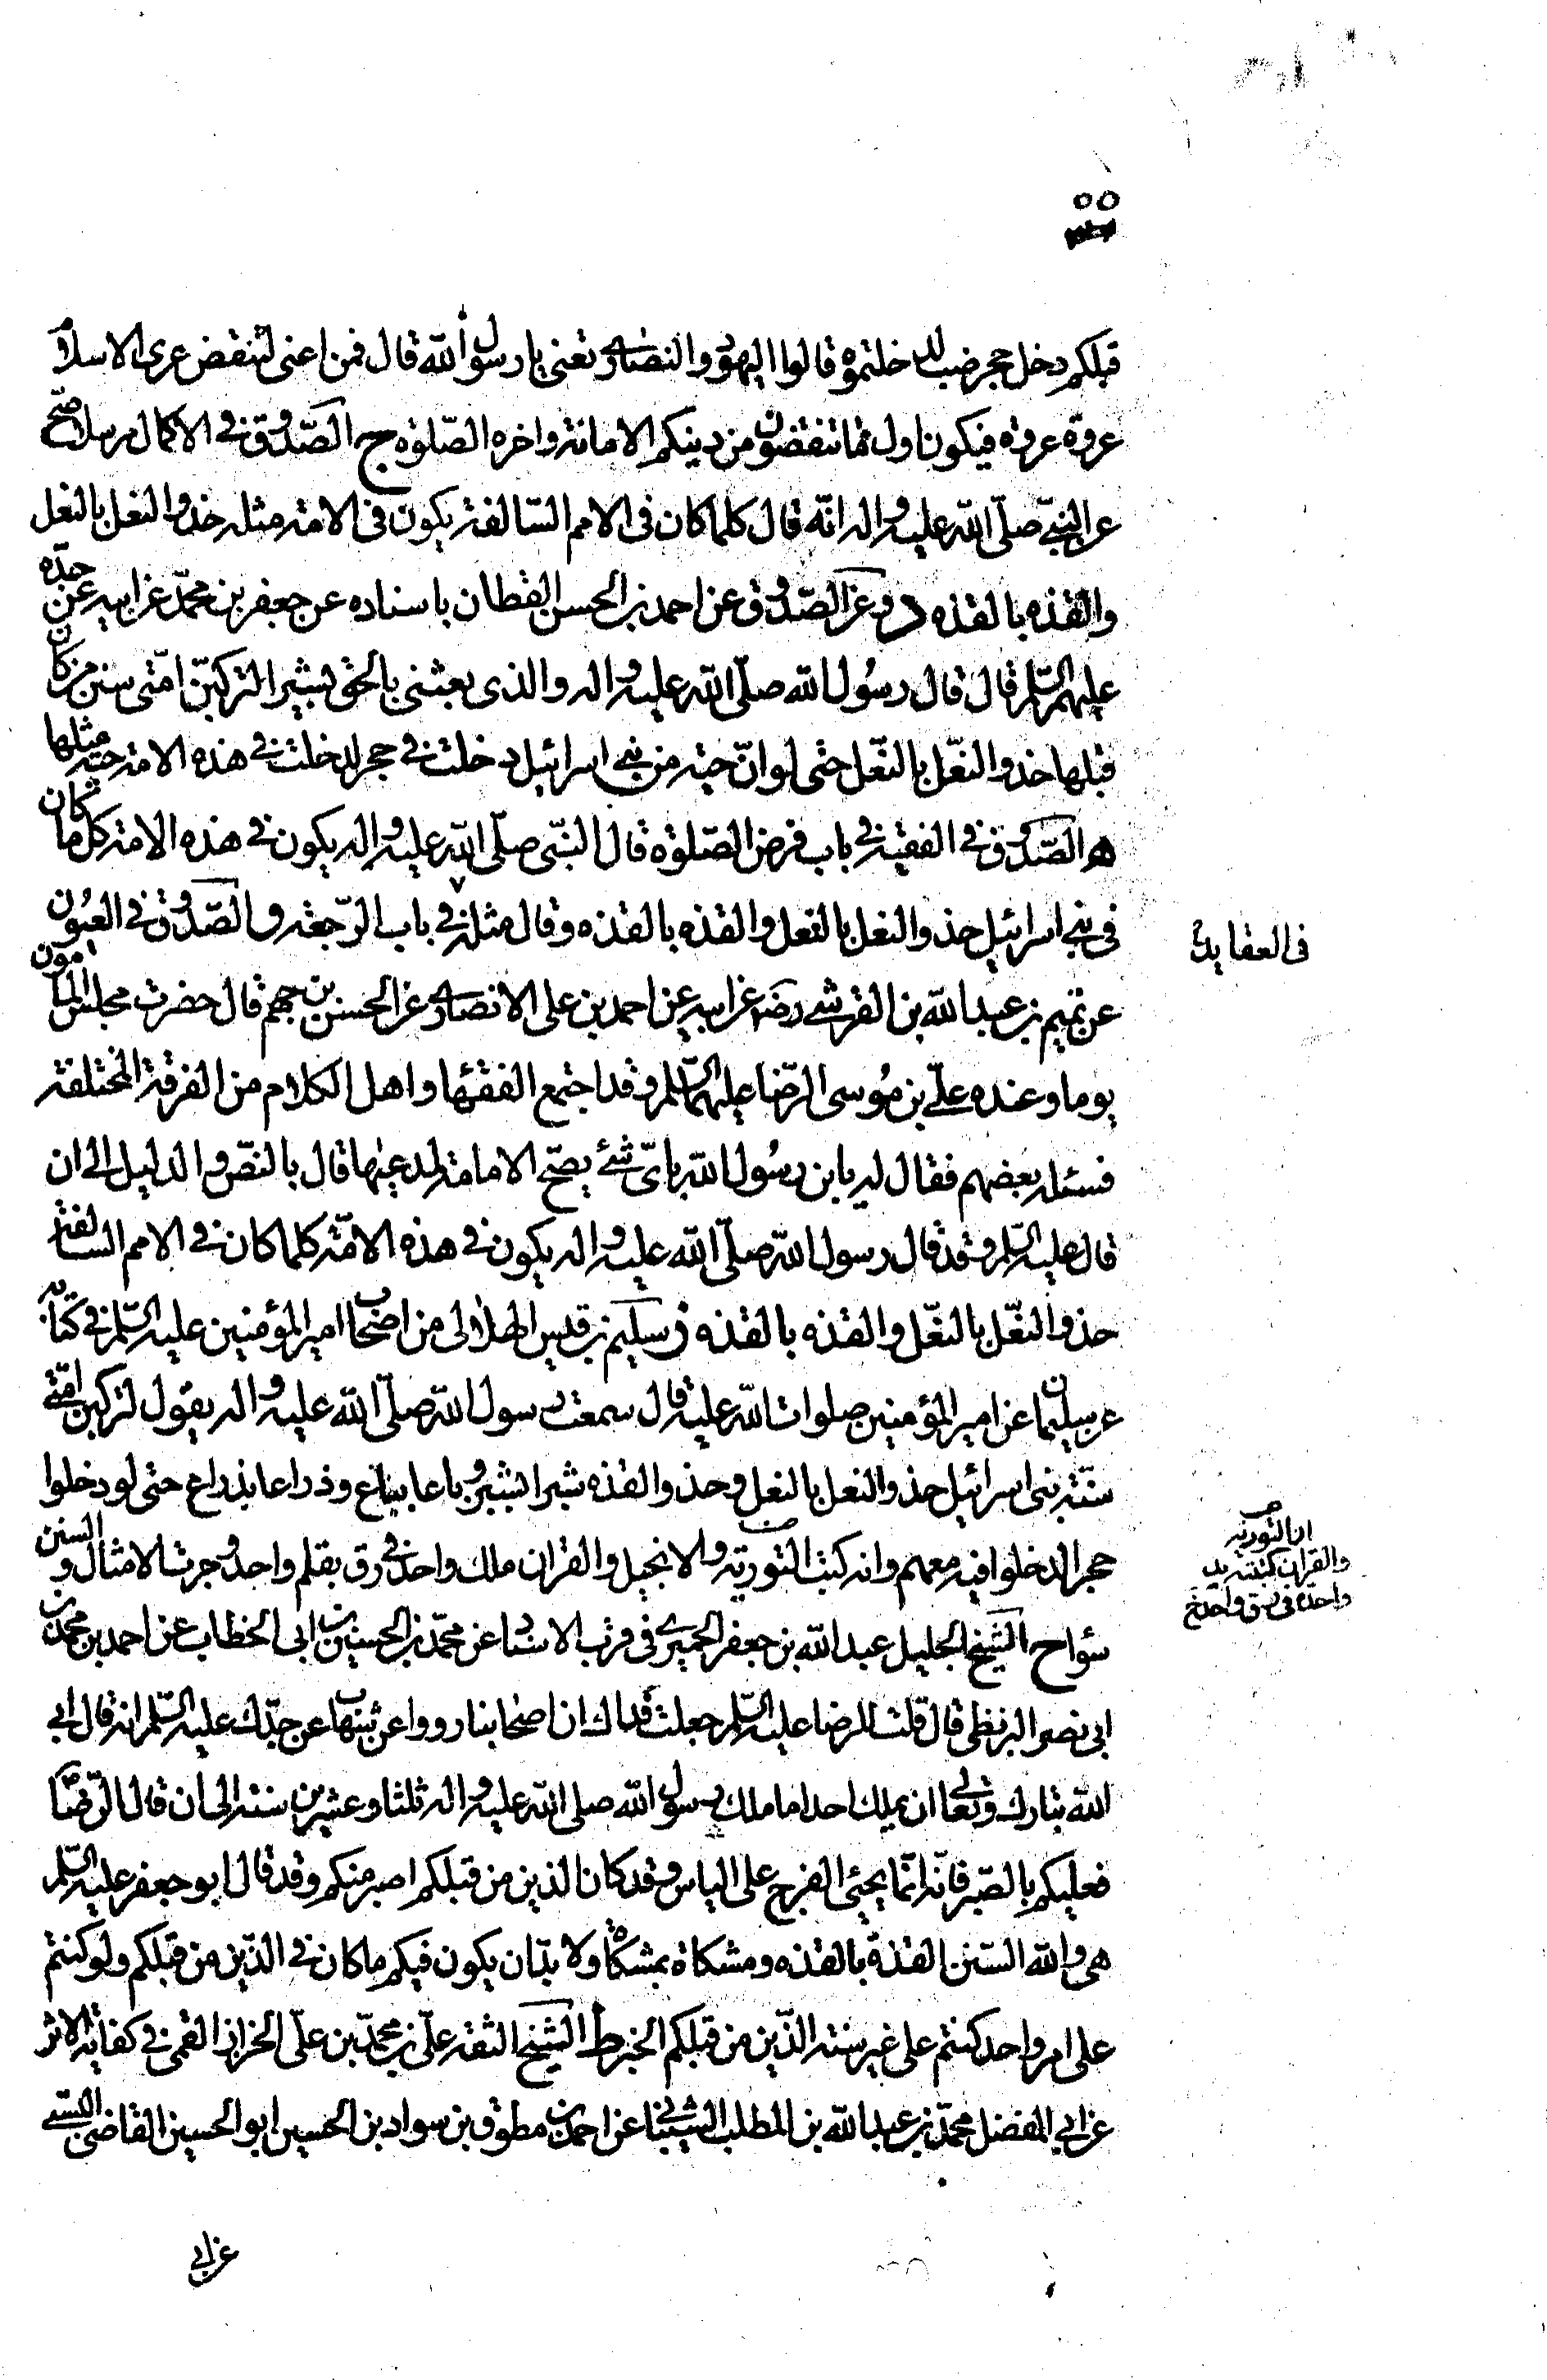 ٥٥
قبلكم دخل حجر ضب لدخلتموه قالوا اليهود والنصارى تعنى يا رسول الله قال فمن اعنى لتنقض عرى الاسلام
عروة عروة فيكون اول ما تنقضون من دينكم الامانة واخره الصلوة ج الصدوق فى الاكمال مرسلا صح
عن النبى صلى الله عليه واله انه قال كلما كان فى الامم السالفة يكون فى الامة مثله حذو النعل بالنعل
والقذه بالقذه د وعن الصدوق عن احمد بن الحسن القطان باسناده عن جعفر بن محمد عن ابيه عن جده
عليهم السلم قال قال رسول الله صلى الله عليه واله والذى بعثنى بالحق بشيرا لتركبن امتى سنن من كان
قبلها حذو النعل بالنعل حتى لو ان حية من بنى اسرائيل دخلت فى حجر لدخلت فى هذه الامة حية مثلها
ه الصدوق فى الفقيه فى باب فرض الصلوة قال النبى صلى الله عليه واله يكون فى هذه الامة كل ما كان
فى بنى اسرائيل حذو النعل بالنعل والقذه بالقذه وقال مثله فى باب الرجعة و الصدوق فى العيون
فى العقايد
عن تميم بن عبد الله بن القرشى رضه عن ابيه عن احمد بن على الانصارى عن الحسن بن جهم قال حضرت مجلس المامون
يوما وعنده على بن موسى الرضا عليهما السلم وقد اجتمع الفقهاء واهل الكلام من الفرقة المختلفة
فسئله بعضهم فقال له يا بن رسول الله باى شئ يصح الامامة لمدعيها قال بالنص والدليل الى ان
قال عليه السلم وقد قال رسول الله صلى الله عليه واله يكون فى هذه الامة كلما كان فى الامم السالفة
حذو النعل بالنعل والقذه بالقذه ز سليم بن قيس الهلالى من اصحاب امير المؤمنين عليه السلم فى كتابه
عن سلمان عن امير المؤمنين صلوات الله عليه قال سمعت رسول الله صلى الله عليه واله يقول لتركبن امتى
سنة بنى اسرائيل حذو النعل بالنعل وحذو القذه شبرا بشبر وباعا بباع وذراعا بذراع حتى لو دخلوا
حجرا لدخلوا فيه معهم وانه كتب التورية والانجيل والقران ملك واحد فى رق بقلم واحد وجرت الامثال والسنن
ان التورية
والقران كتبته يد
واحدة فى رق واحد خ
سواء ح الشيخ الجليل عبد الله بن جعفر الحميرى فى قرب الاسناد عن محمد بن الحسين بن ابى الخطاب عن احمد بن محمد بن
ابى نصر البزنطى قال قلت للرضا عليه السلم جعلت فداك ان اصحابنا رووا عن شهاب عن جدك عليه السلم انه قال ابى
الله تبارك وتعالى ان يملك احدا ما ملك رسول الله صلى الله عليه واله ثلثا وعشرين سنة الى ان قال الرضا
فعليكم بالصبر فانه انما يجيئ الفرج على الياس وقد كان الذين من قبلكم اصبر منكم وقد قال ابو جعفر عليه السلم
هى والله السنن القذة بالقذه ومشكاة بمشكاة ولا بد ان يكون فيكم ما كان فى الذين من قبلكم ولو كنتم
على امر واحد كنتم على غير سنة الذين من قبلكم الخبر ط الشيخ الثقة على بن محمد بن على الخزاز القمى فى كفاية الاثر
عن ابى المفضل محمد بن عبد الله بن المطلب الشيبانى عن احمد بن مطوق بن سواد بن الحسين ابو الحسين القاضى البستى
عن ابى